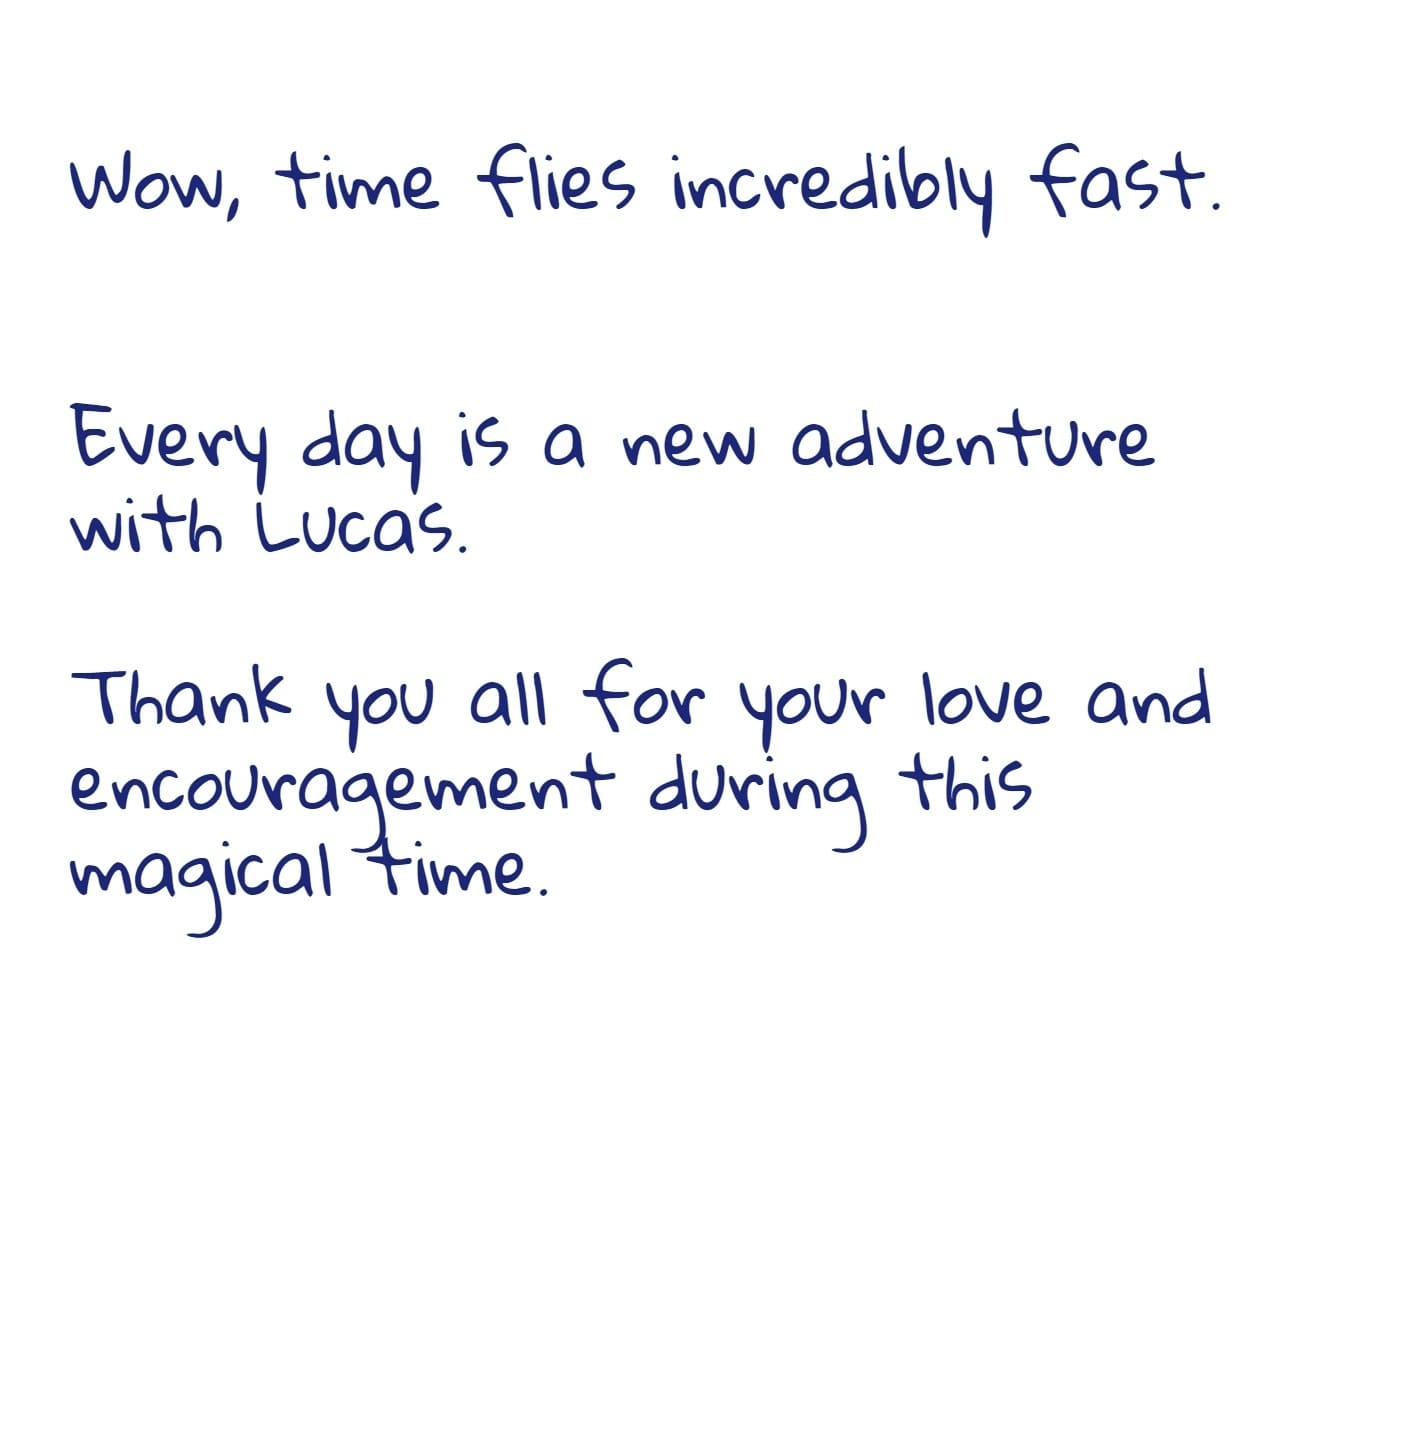 Wow, time flies incredibly fast.
Every day is a new adventure
with Lucas.
Thank you all for your love and
encouragement during this
magical time.